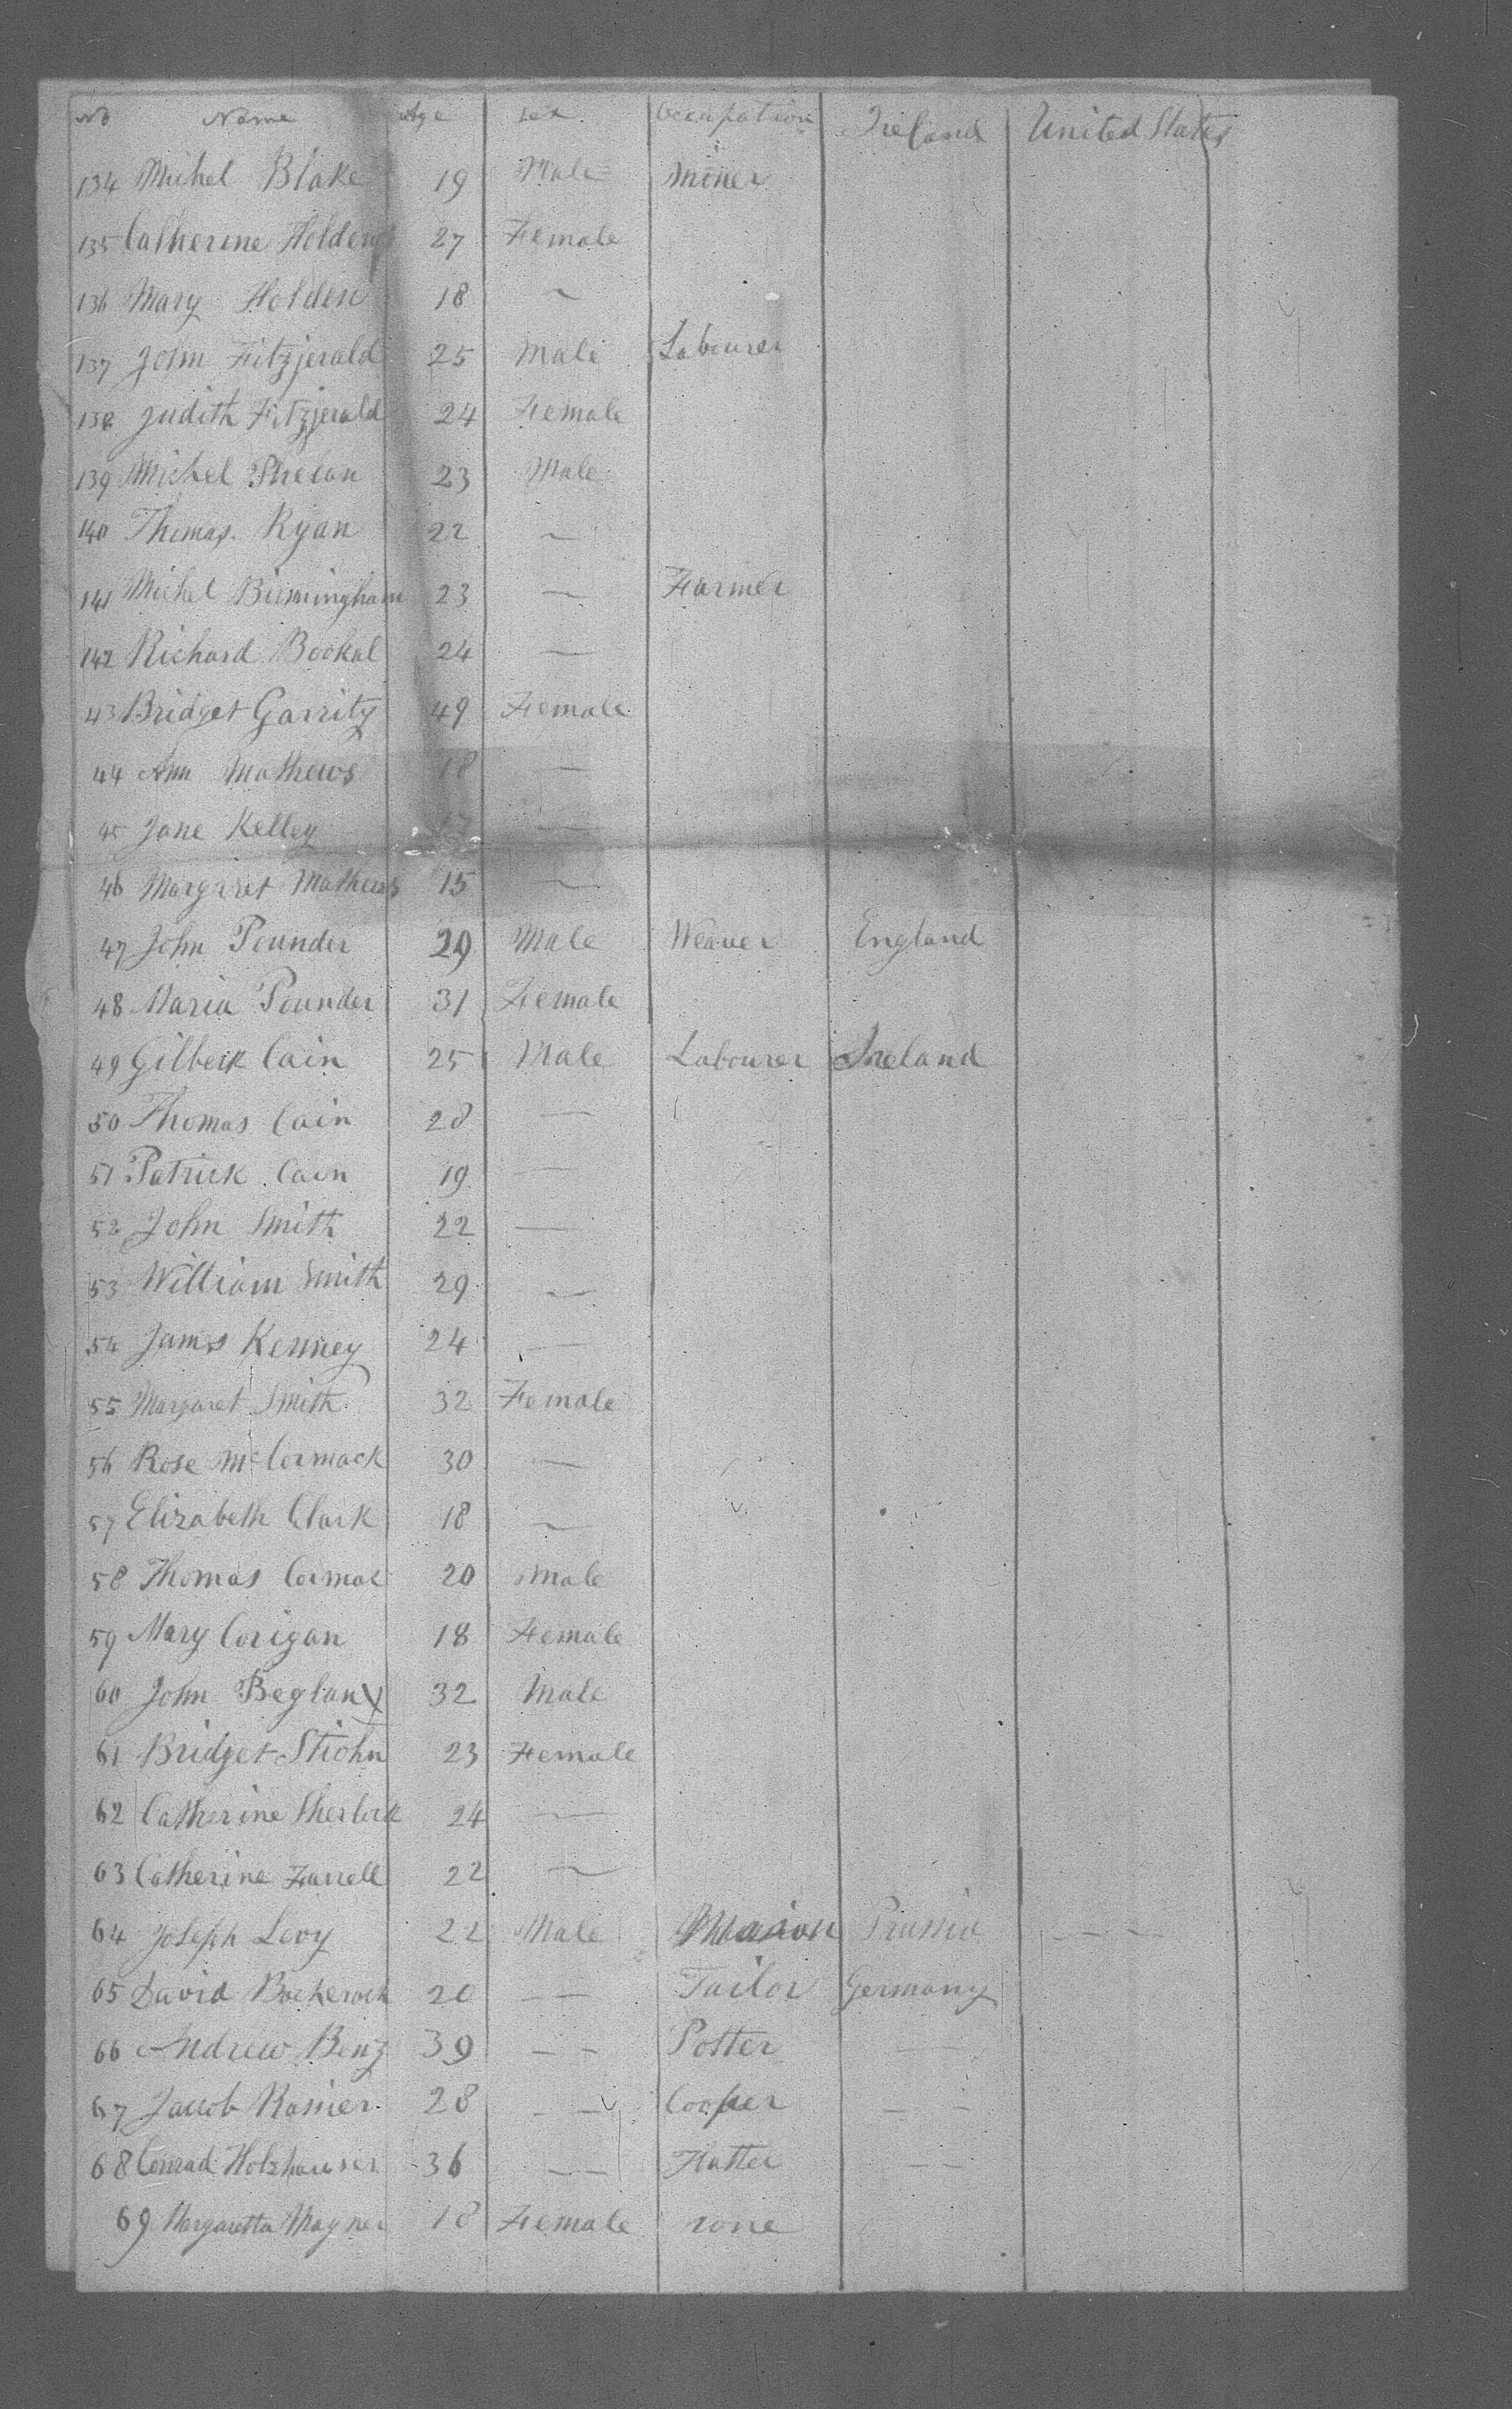 No Name Age Sex Occupation Ireland United States
134 Michel Blake 19 Male Miner
135 Catherine Holden 27 Female
136 Mary Holden 18 ~
137 John Fitzjerald 25 Male Labourer
138 Judith Fitzjerald 24 Female
139 Michel Phelan 23 Male
140 Thomas Ryan 22 ~
141 Michel Birmingham 23 — Farmer
142 Richard Bookal 24 —
43 Bridget Garrity 49 Female
44 Ann Mathews 18 —
45 Jane Kelley —
46 Margaret Mathews 15 ~
47 John Pounder 29 Male Weaver England
48 Maria Pounder 31 Female
49 Gilbert Cain 25 Male Labourer Ireland
50 Thomas Cain 28 —
51 Patrick Cain 19 —
52 John Smith 22 —
53 William Smith 29 ~
54 James Kenney 24 —
55 Margaret Smith 32 Female
56 Rose McCormack 30 —
57 Elizabeth Clark 18 ~
58 Thomas Cormac 20 Male
59 Mary Corigan 18 Female
60 John Beglan 32 Male
61 Bridget Stiohn 23 Female
62 Catherine Sherlock 24 —
63 Catherine Farrell 22 ~
64 Joseph Levy 22 Male Prussia - - -
65 David 20 — — Tailor Germany
66 Andrew Benz 39 — — Potter —
67 Jacob Rasner 28 — — Cooper — —
68 Conrad Holzhauser 36 — — Hatter — —
69 Margaretta Magner 18 Female none